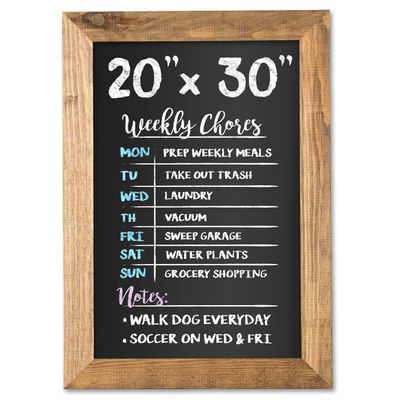 20" x 30"
Weekly Chores
MON PREP WEEKLY MEALS
TU TAKE OUT TRASH
WED LAUNDRY
TH VACUUM
FRI SWEEP GARAGE
SAT WATER PLANTS
SUN GROCERY SHOPPING
Notes:
• WALK DOG EVERYDAY
• SOCCER ON WED & FRI